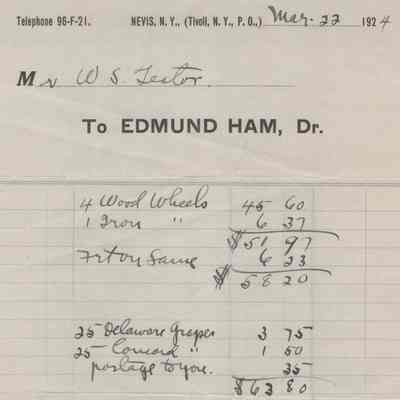 Telephone 96-F-21. NEVIS, N. Y., (Tivoli, N. Y., P. O.,) Mar. 22 1924
Mr W S Teator.
To EDMUND HAM, Dr.
4 Wood Wheels 45 60
1 Iron " 6 37
$51 97
Frt on Same 6 23
$58 20
25 Delaware Grapes 3 75
25 Concord " 1 50
postage to you. 35
$63 80